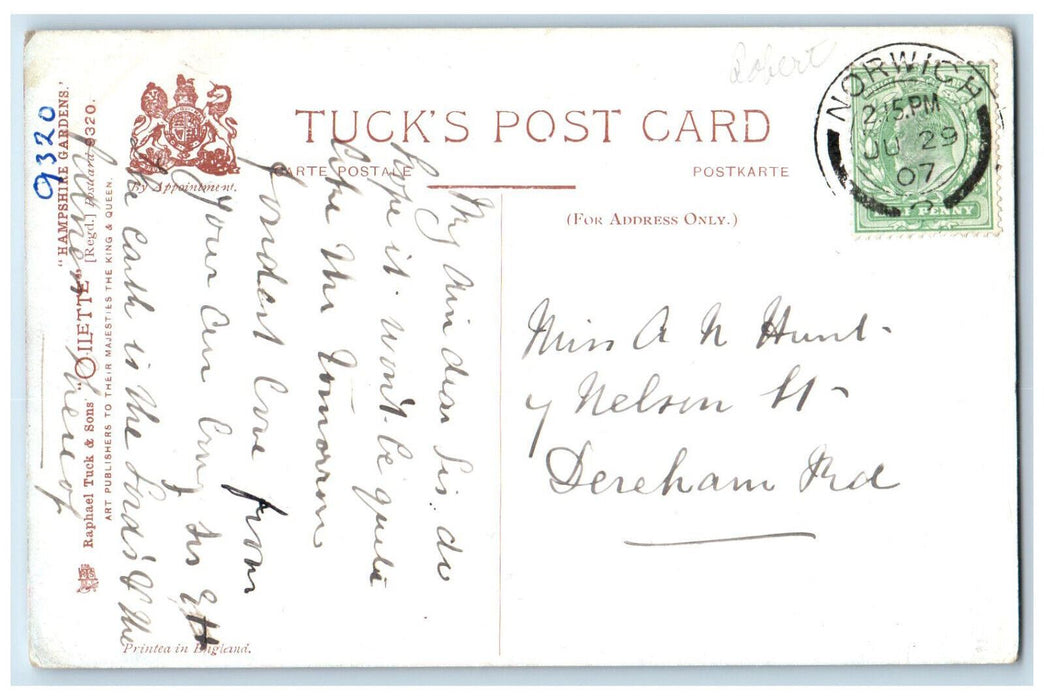 Robert
TUCK'S POST CARD
CARTE POSTALE
POSTKARTE
(FOR ADDRESS ONLY.)
By Appointment.
NORWICH
2.15.PM
JU 29
07
HALF PENNY
Miss A N Hunt
7 Nelson St
Dereham Rd
My Ain dear Sis. do
hope it won't be quite
like this Tomorrow
Fondest Love from
Your Own Sis
The earth is the Lord's & the
fulness thereof
9320
"HAMPSHIRE GARDENS."
Raphael Tuck & Sons' "OILETTE" [Regd.] Postcard 9320.
ART PUBLISHERS TO THEIR MAJESTIES THE KING & QUEEN.
Printed in England.